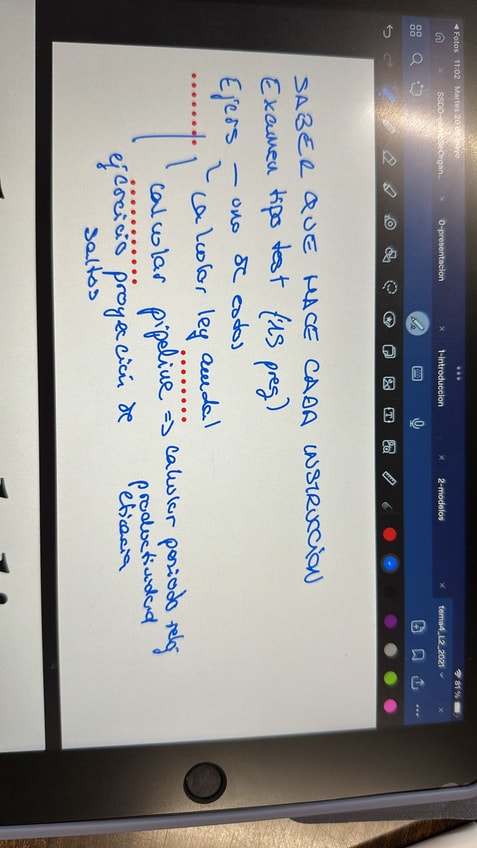 Fotos 11:02 Martes 20 de mayo
81 %
SSDD-
Organ...
0-presentacion
1-introduccion
2-modelos
tema4_L2_2021
SABER QUE HACE CADA INSTRUCCION
Examen tipo test (15 preg)
Ejers - uno de estos
calcular ley amdal
calcular pipeline => calcular periodo reloj
productividad
eficacia
ejercicio proyección de
saltos